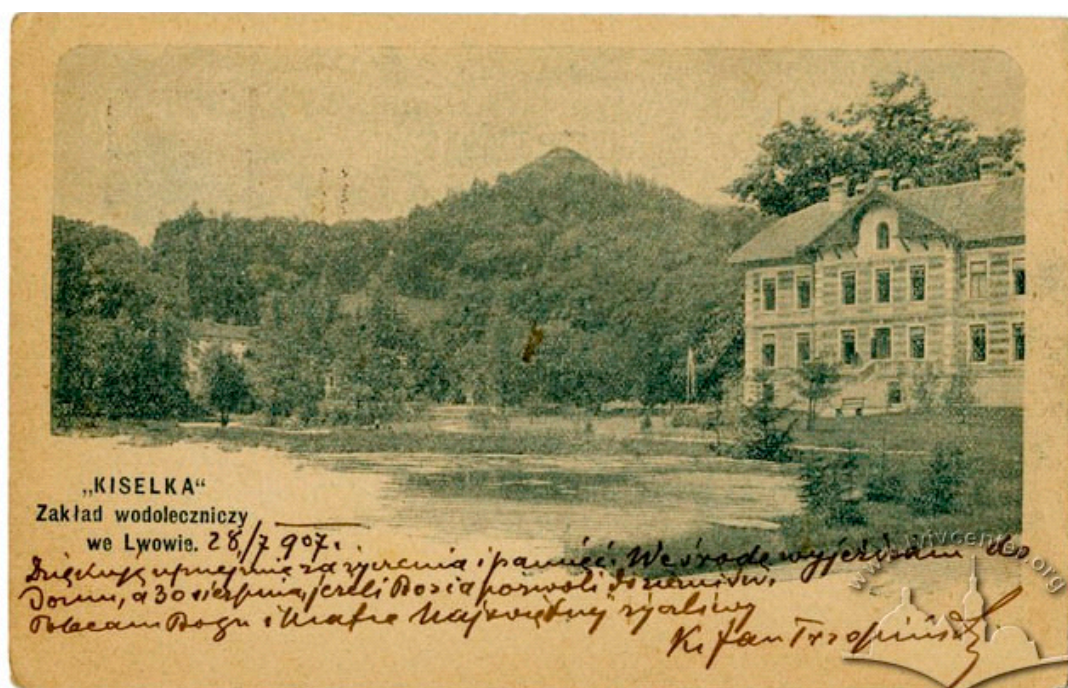 „KISELKA“
Zakład wodoleczniczy
we Lwowie. 28/7 907.
Dziękuję uprzejmie za życzenia i pamięć. We środę wyjeżdżam do
Domu, a 30 sierpnia, jeżeli Bozia pozwoli
Polecam Bogu i Matce Najświętszej życzliwy
Ks Jan Trzopiński
www.lvivcenter.org